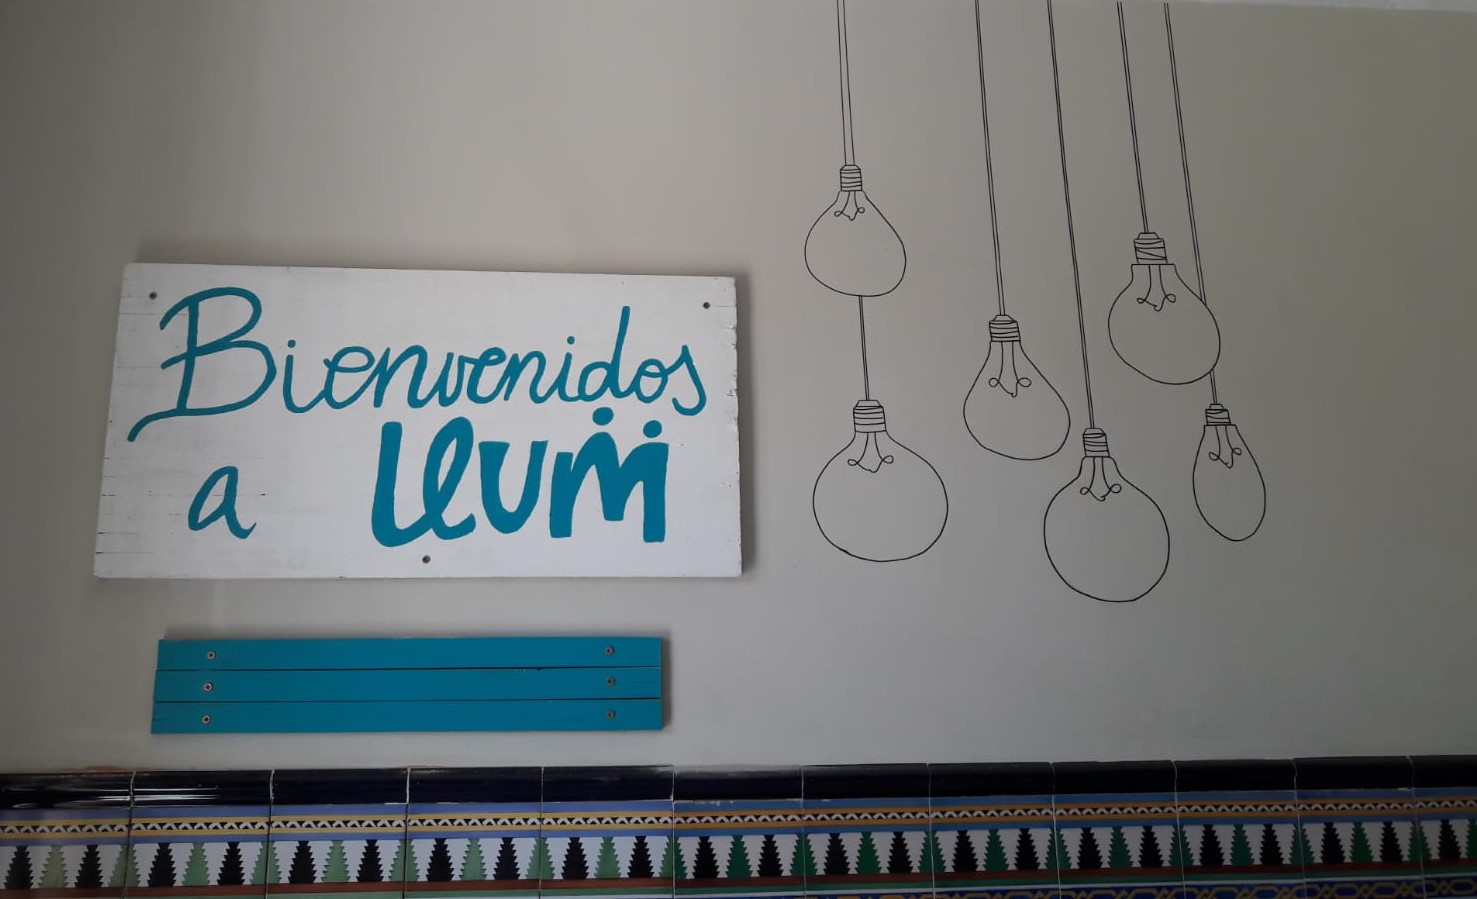 Bienvenidos
a llum